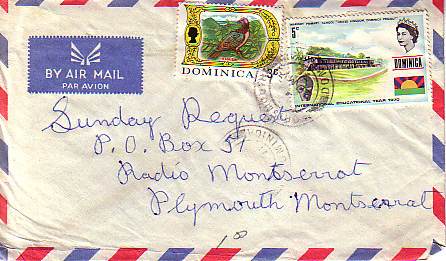 BY AIR MAIL
PAR AVION
DOMINICA
3c
5c
DOMINICA
INTERNATIONAL EDUCATIONAL YEAR 1970
Sunday Request
P.O. Box 51
Radio Montserrat
Plymouth Montserrat